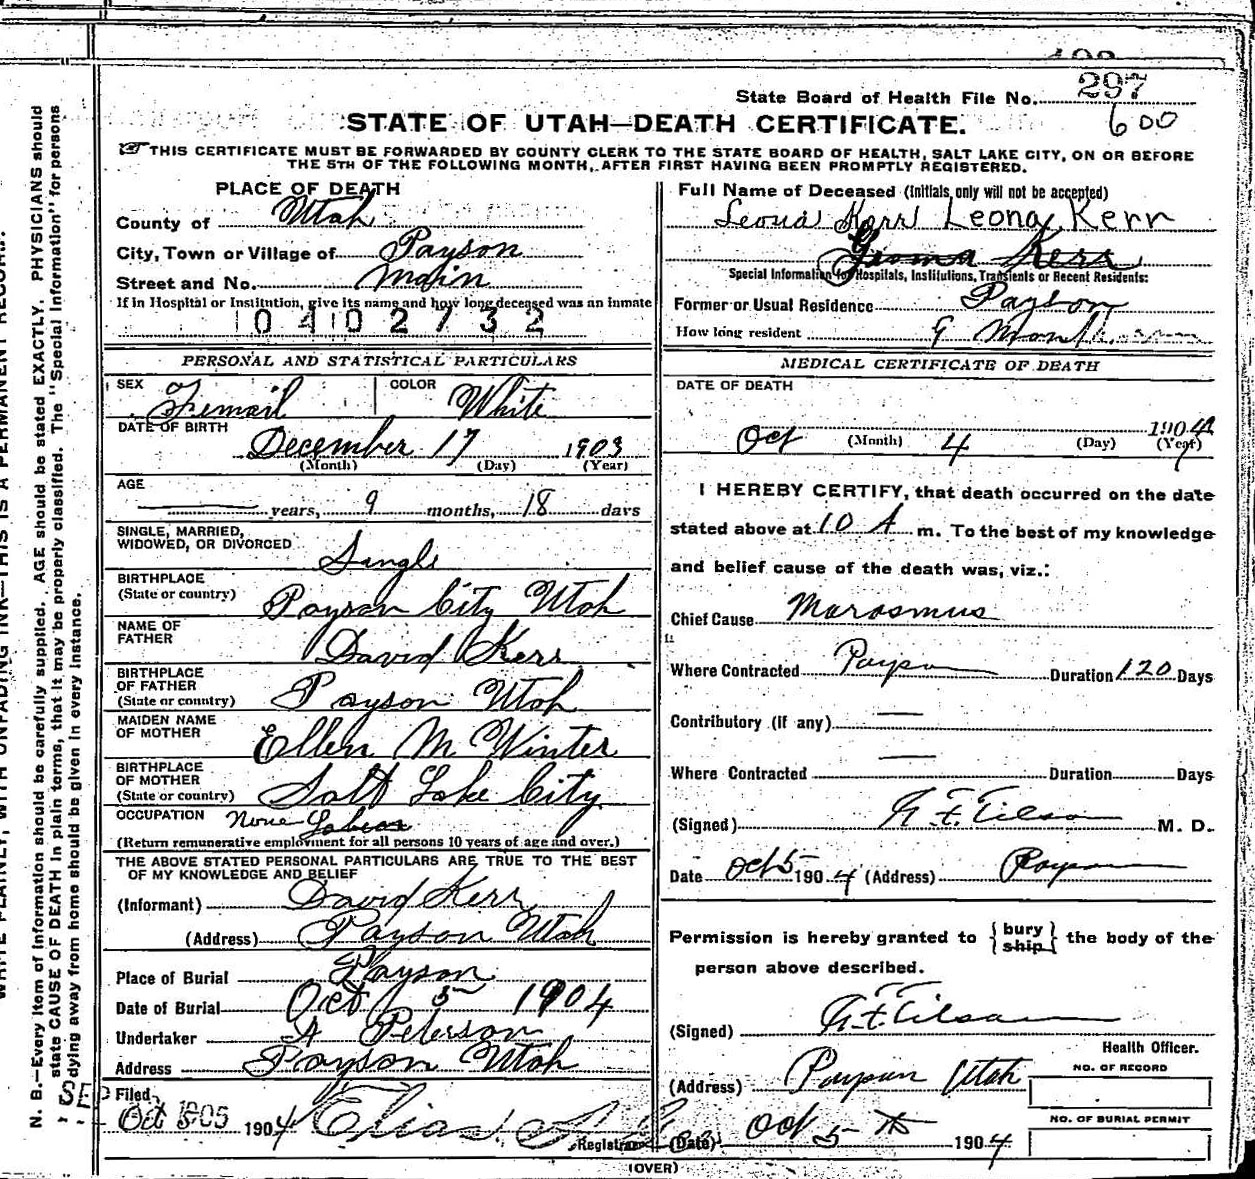 State Board of Health File No. 297
600
STATE OF UTAH—DEATH CERTIFICATE.
THIS CERTIFICATE MUST BE FORWARDED BY COUNTY CLERK TO THE STATE BOARD OF HEALTH, SALT LAKE CITY, ON OR BEFORE
THE 5TH OF THE FOLLOWING MONTH, AFTER FIRST HAVING BEEN PROMPTLY REGISTERED.
PLACE OF DEATH
County of Utah
City, Town or Village of Payson
Street and No. Main
If in Hospital or Institution, give its name and how long deceased was an inmate
0402732
PERSONAL AND STATISTICAL PARTICULARS
SEX Femail COLOR White
DATE OF BIRTH
December 17 1903
(Month) (Day) (Year)
AGE
years, 9 months, 18 days
SINGLE, MARRIED,
WIDOWED, OR DIVORCED Single
BIRTHPLACE
(State or country) Payson City Utah
NAME OF
FATHER David Kerr
BIRTHPLACE
OF FATHER
(State or country) Payson Utah
MAIDEN NAME
OF MOTHER Ellen M Winter
BIRTHPLACE
OF MOTHER
(State or country) Salt Lake City
OCCUPATION None
(Return remunerative employment for all persons 10 years of age and over.)
THE ABOVE STATED PERSONAL PARTICULARS ARE TRUE TO THE BEST
OF MY KNOWLEDGE AND BELIEF
(Informant) David Kerr
(Address) Payson Utah
Place of Burial Payson
Date of Burial Oct 5 1904
Undertaker Peterson
Address Payson Utah
Filed
Oct 1904 Elias Registrar
Full Name of Deceased (Initials only will not be accepted)
Leona Kerr Leona Kerr
Kerr
Special Information for Hospitals, Institutions, Transients or Recent Residents:
Former or Usual Residence Payson
How long resident 9 Months
MEDICAL CERTIFICATE OF DEATH
DATE OF DEATH
Oct 4 1904
(Month) (Day) (Year)
I HEREBY CERTIFY, that death occurred on the date
stated above at 10 A m. To the best of my knowledge
and belief cause of the death was, viz.:
Chief Cause Marasmus
Where Contracted Payson Duration 120 Days
Contributory (if any) —
Where Contracted — Duration Days
(Signed) M. D.
Date Oct 5 1904 (Address) Payson
Permission is hereby granted to { bury ship } the body of the
person above described.
(Signed)
Health Officer.
(Address) Payson Utah
NO. OF RECORD
NO. OF BURIAL PERMIT
(Date) Oct 5 th 1904
(OVER)
N. B.—Every item of information should be carefully supplied. AGE should be stated EXACTLY. PHYSICIANS should
state CAUSE OF DEATH in plain terms, that it may be properly classified. The "Special Information" for persons
dying away from home should be given in every instance.